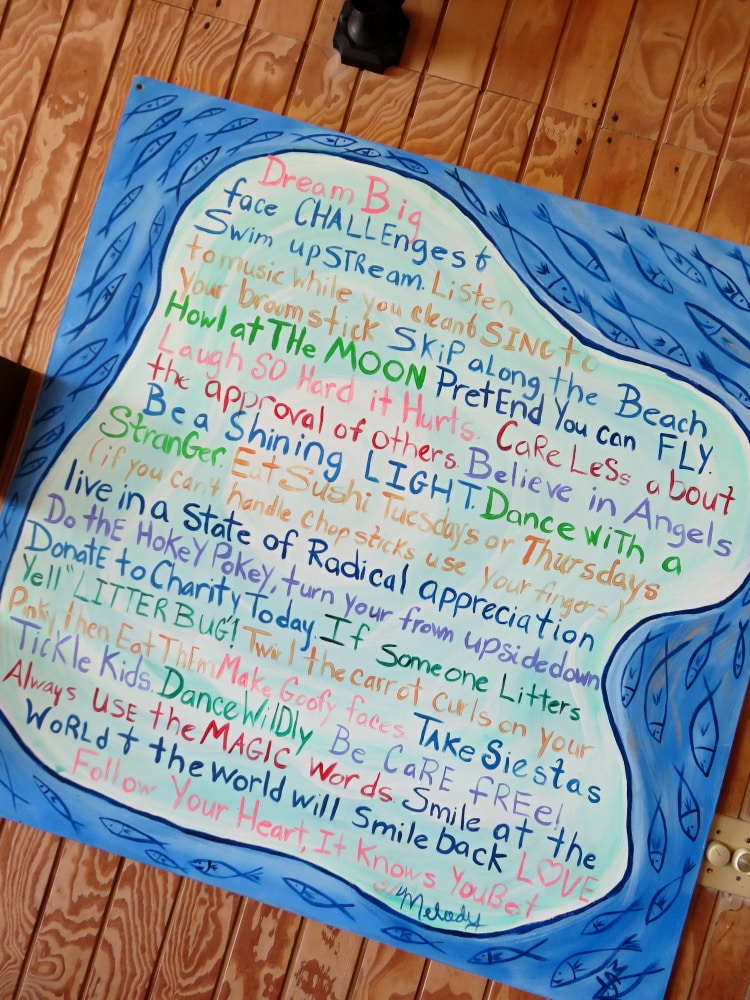 Dream Big
face CHALLEnges &
Swim upSTReam. Listen
to music while you clean & SING to
Your broomstick SKip along the Beach
Howl at THe MOON PretEnd You can FLY.
Laugh SO Hard it Hurts. CaRe LeSs about
the approval of others. Believe in Angels
Be a Shining LIGHT. Dance with a
StranGer. Eat Sushi Tuesdays or Thursdays
(if you can't handle chopsticks use your fingers)
live in a State of Radical appreciation
Do thE HoKeY PoKey, turn your frown upsidedown
DonatE to Charity Today. If Someone Litters
Yell "LITTERBUG"! Twirl the carrot curls on your
Pinky then Eat Them Make Goofy faces. TAKe Siestas
TicKle Kids. Dance WilDly Be CaRE fREe!
Always USE the MAGIC WoRds Smile at the
WoRLd & the world will Smile back LOVE
Follow Your Heart, It Knows YouBet
Melody